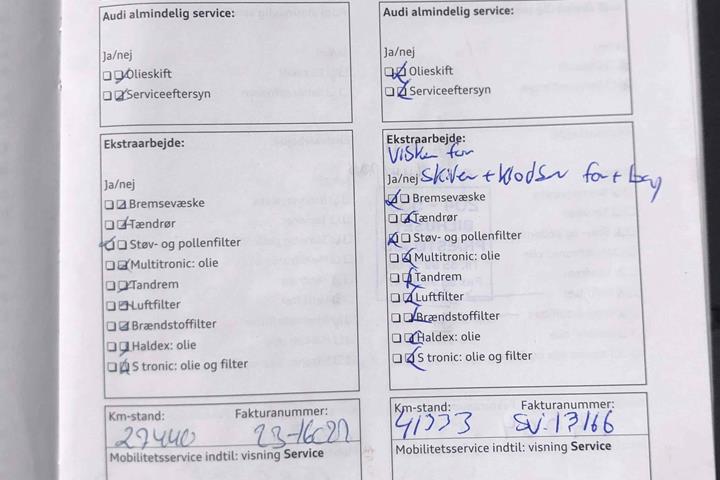 Audi almindelig service:
Ja/nej
Olieskift
Serviceeftersyn
Ekstraarbejde:
Ja/nej
Bremsevæske
Tændrør
Støv- og pollenfilter
Multitronic: olie
Tandrem
Luftfilter
Brændstoffilter
Haldex: olie
S tronic: olie og filter
Km-stand: Fakturanummer:
27440
Mobilitetsservice indtil: visning Service
Audi almindelig service:
Ja/nej
Olieskift
Serviceeftersyn
Ekstraarbejde:
Visker for
Ja/nej Skiver + klodser for + bag
Bremsevæske
Tændrør
Støv- og pollenfilter
Multitronic: olie
Tandrem
Luftfilter
Brændstoffilter
Haldex: olie
S tronic: olie og filter
Km-stand: Fakturanummer:
41333 SV-17166
Mobilitetsservice indtil: visning Service